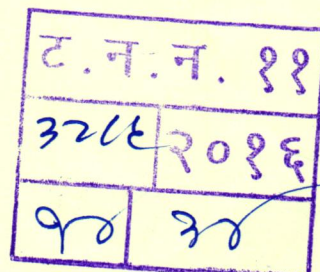 ट.न.न. ११
३२८६ २०१६
१४ ३४